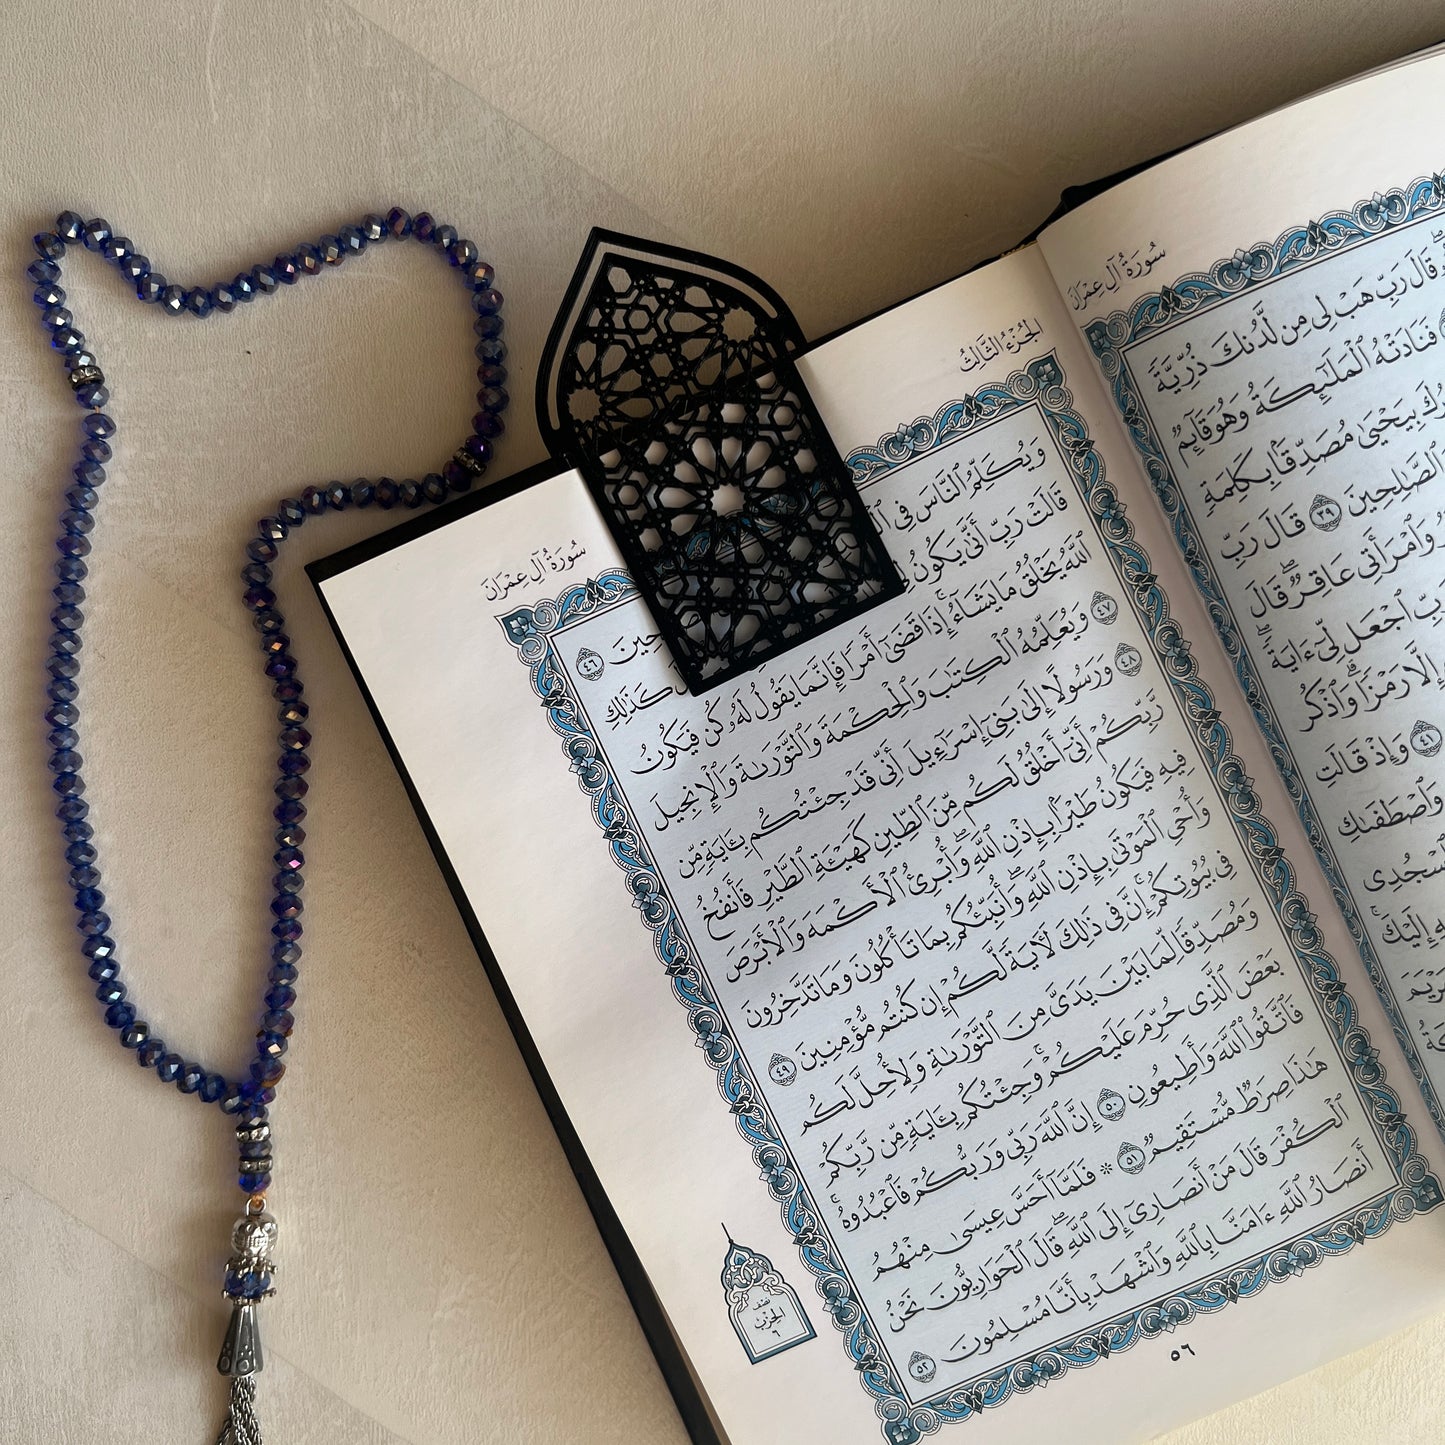 سُورَةُ آلِ عِمْرَانَ
قَالَ رَبِّ هَبْ لِى مِن لَّدُنكَ ذُرِّيَّةً
فَنَادَتْهُ ٱلْمَلَٰٓئِكَةُ وَهُوَ قَآئِمٌ
بِيَحْيَىٰ مُصَدِّقًۢا بِكَلِمَةٍ
ٱلصَّٰلِحِينَ ٣٩ قَالَ رَبِّ
وَٱمْرَأَتِى عَاقِرٌۖ قَالَ
ٱجْعَل لِّىٓ ءَايَةًۖ
إِلَّا رَمْزًاۗ وَٱذْكُر
٤١ وَإِذْ قَالَتِ
وَٱصْطَفَىٰكِ
إِلَيْكَۚ
الجُزْءُ الثَّالِثُ
سُورَةُ آلِ عِمْرَانَ
وَيُكَلِّمُ ٱلنَّاسَ فِى ٤٦
قَالَتْ رَبِّ أَنَّىٰ يَكُونُ كَذَٰلِكِ
ٱللَّهُ يَخْلُقُ مَا يَشَآءُۚ إِذَا قَضَىٰٓ أَمْرًا فَإِنَّمَا يَقُولُ لَهُۥ كُن فَيَكُونُ
٤٧ وَيُعَلِّمُهُ ٱلْكِتَٰبَ وَٱلْحِكْمَةَ وَٱلتَّوْرَىٰةَ وَٱلْإِنجِيلَ
٤٨ وَرَسُولًا إِلَىٰ بَنِىٓ إِسْرَٰٓءِيلَ أَنِّى قَدْ جِئْتُكُم بِـَٔايَةٍ مِّن
رَّبِّكُمْ أَنِّىٓ أَخْلُقُ لَكُم مِّنَ ٱلطِّينِ كَهَيْـَٔةِ ٱلطَّيْرِ فَأَنفُخُ
فِيهِ فَيَكُونُ طَيْرًۢا بِإِذْنِ ٱللَّهِۖ وَأُبْرِئُ ٱلْأَكْمَهَ وَٱلْأَبْرَصَ
وَأُحْىِ ٱلْمَوْتَىٰ بِإِذْنِ ٱللَّهِۖ وَأُنَبِّئُكُم بِمَا تَأْكُلُونَ وَمَا تَدَّخِرُونَ
فِى بُيُوتِكُمْۚ إِنَّ فِى ذَٰلِكَ لَـَٔايَةً لَّكُمْ إِن كُنتُم مُّؤْمِنِينَ ٤٩
وَمُصَدِّقًا لِّمَا بَيْنَ يَدَىَّ مِنَ ٱلتَّوْرَىٰةِ وَلِأُحِلَّ لَكُم
بَعْضَ ٱلَّذِى حُرِّمَ عَلَيْكُمْۚ وَجِئْتُكُم بِـَٔايَةٍ مِّن رَّبِّكُمْ
فَٱتَّقُوا۟ ٱللَّهَ وَأَطِيعُونِ ٥٠ إِنَّ ٱللَّهَ رَبِّى وَرَبُّكُمْ فَٱعْبُدُوهُۚ
هَٰذَا صِرَٰطٌ مُّسْتَقِيمٌ ٥١ ۞ فَلَمَّآ أَحَسَّ عِيسَىٰ مِنْهُمُ
ٱلْكُفْرَ قَالَ مَنْ أَنصَارِىٓ إِلَى ٱللَّهِۖ قَالَ ٱلْحَوَارِيُّونَ نَحْنُ
أَنصَارُ ٱللَّهِ ءَامَنَّا بِٱللَّهِ وَٱشْهَدْ بِأَنَّا مُسْلِمُونَ ٥٢
نصف
الحِزْبِ
٦
٥٦